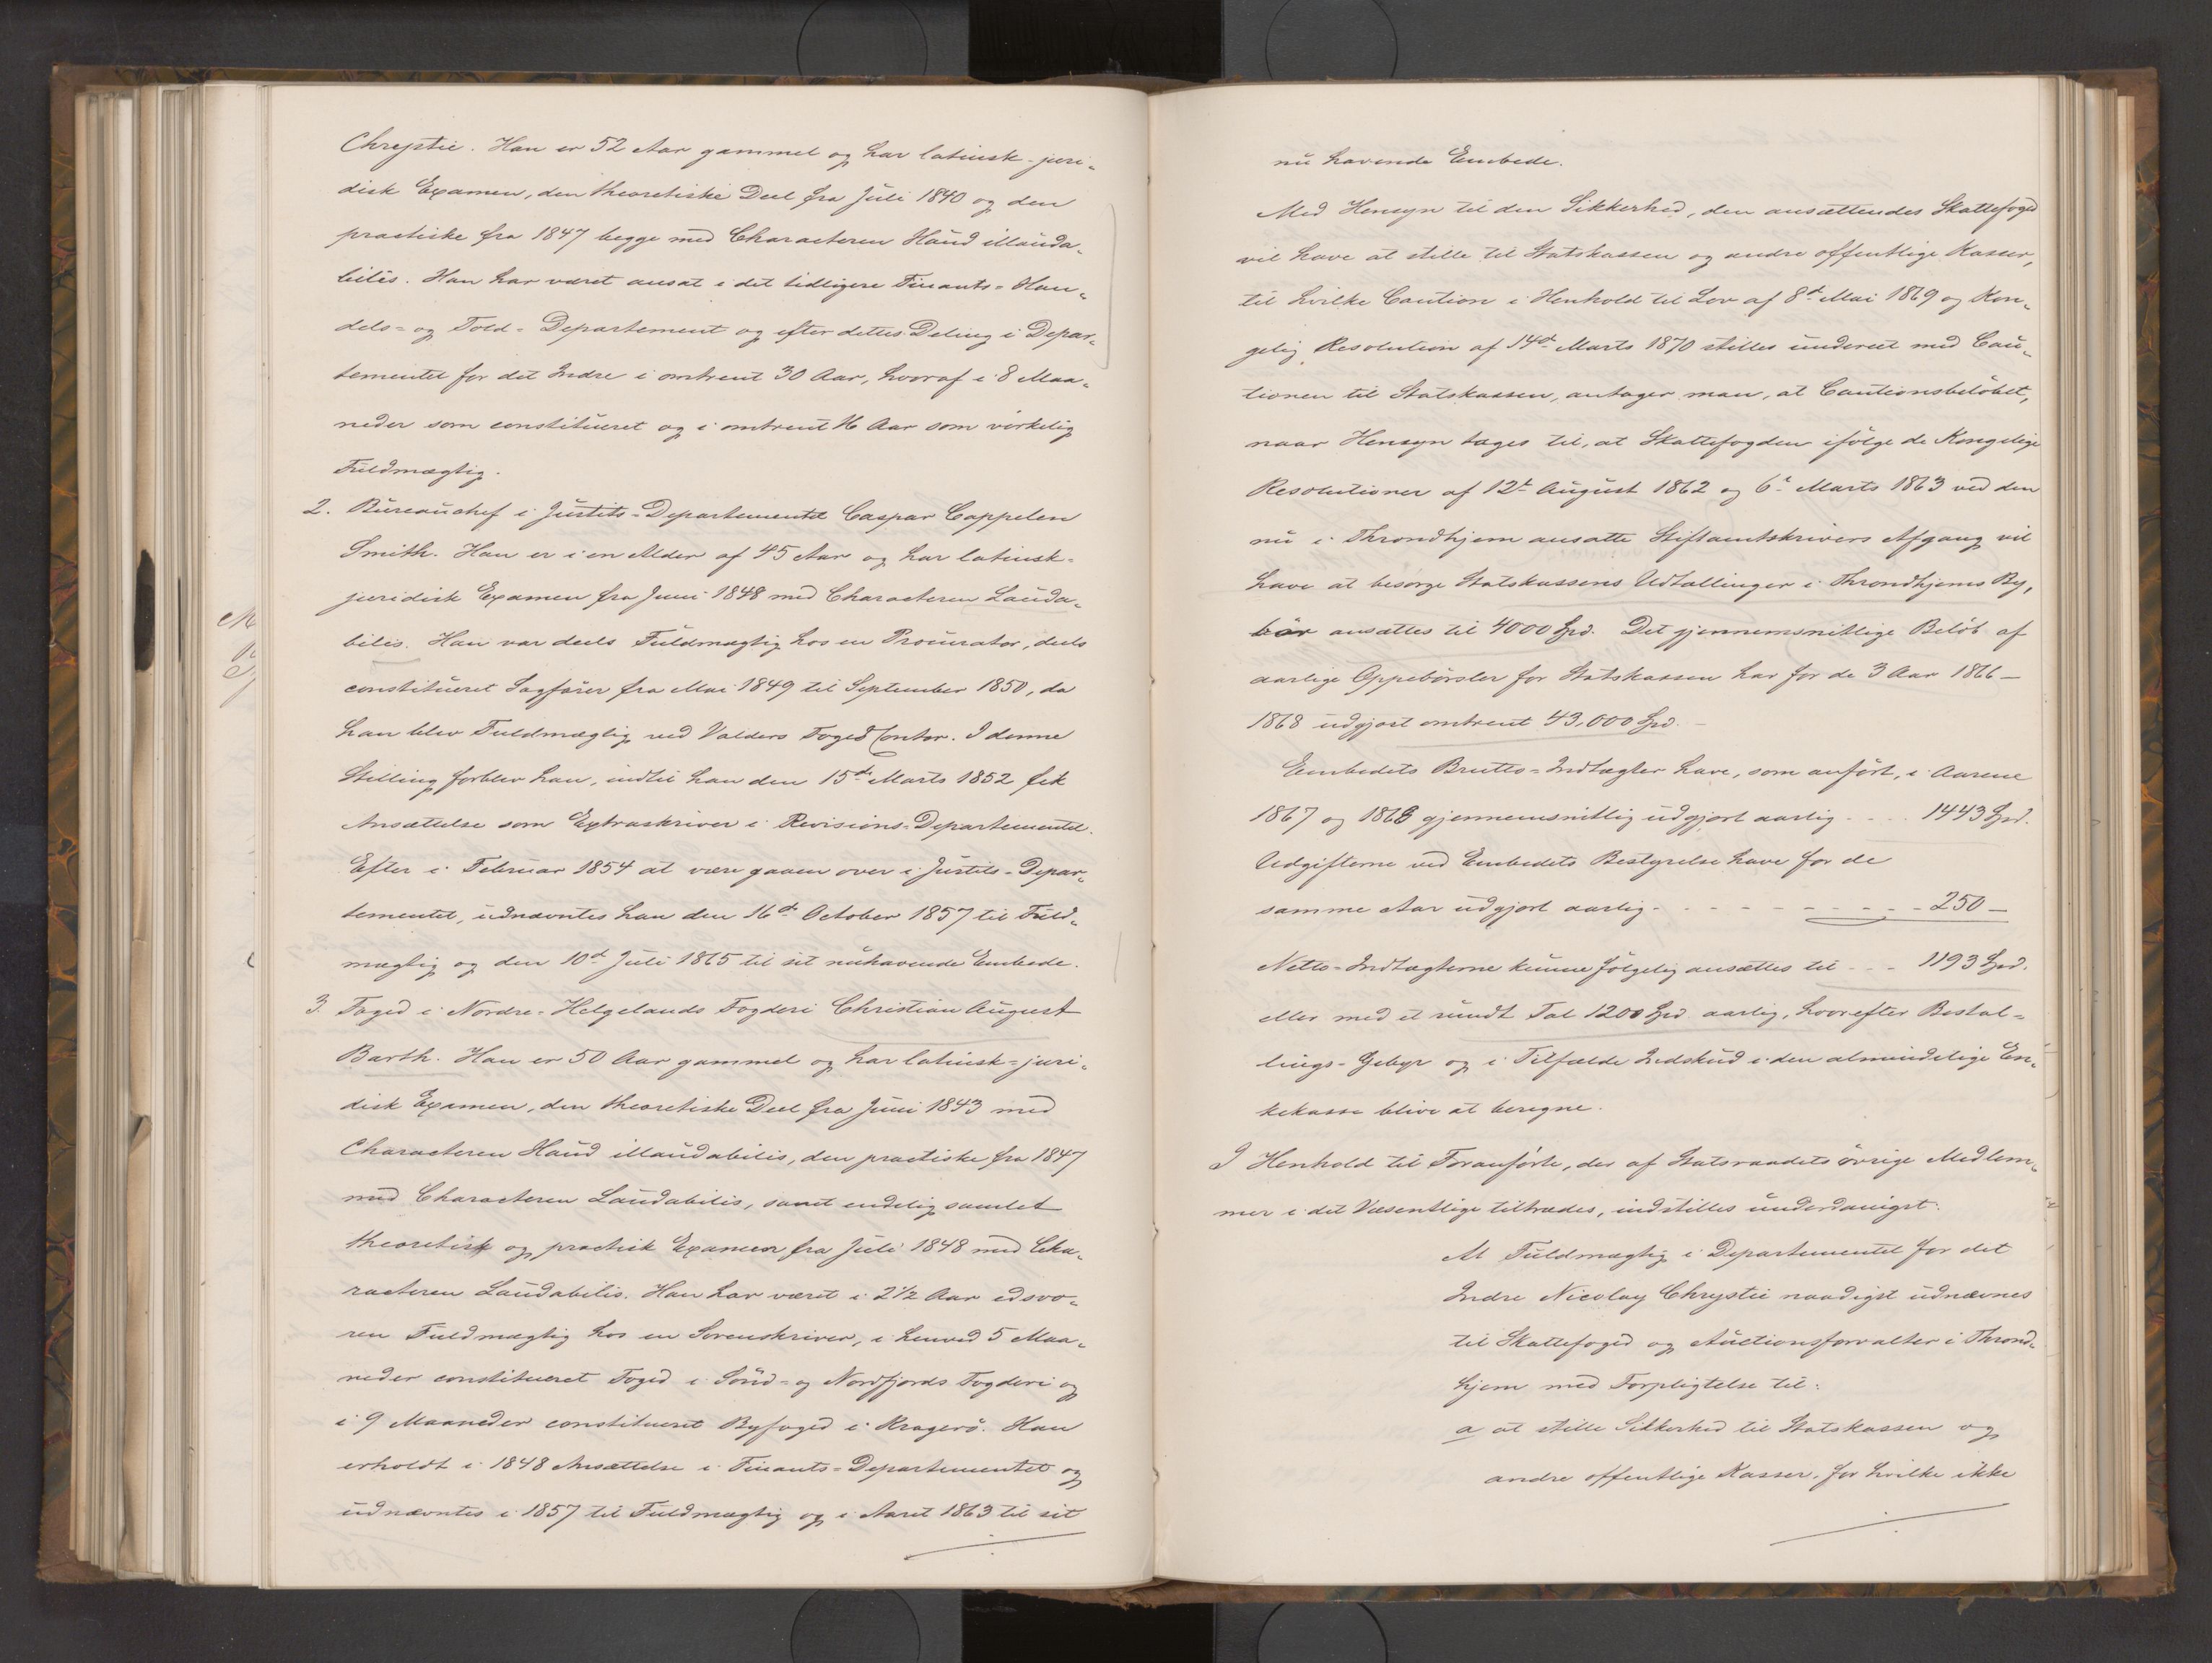 Chrystie. Han er 52 Aar gammel og har latinsk-juri-
disk Examen, den theoretiske Deel fra Juli 1840 og den
practiske fra 1847 begge med Characteren Haud illauda-
bilis. Han har været ansat i det tidligere Finants-Han-
dels- og Told-Departement og efter dettes Deling i Depar-
tementet for det Indre i omtrent 30 Aar, hvoraf i 8 Maa-
neder som constitueret og i omtrent 16 Aar som virkelig
Fuldmægtig.
2. Bureauchef i Justits-Departementet Caspar Cappelen
Smith. Han er i en Alder af 45 Aar og har latinsk-
juridisk Examen fra Juni 1848 med Characteren Lauda-
bilis. Han var deels Fuldmægtig hos en Procurator, deels
constitueret Sagfører fra Mai 1849 til September 1850, da
han blev Fuldmægtig ved Valders Foged Contor. I denne
Stilling forblev han, indtil han den 15de Marts 1852 fik
Ansættelse som Extraskriver i Revisions-Departementet.
Efter i Februar 1854 at være gaaen over i Justits-Depar-
tementet, udnævntes han den 16de October 1857 til Fuld-
mægtig og den 10de Juli 1865 til sit nuhavende Embede.
3. Foged i Nordre-Helgelands Fogderi Christian August
Barth. Han er 50 Aar gammel og har latinsk-juri-
disk Examen, den theoretiske Deel fra Juni 1843 med
Characteren Haud illaudabilis, den practiske fra 1847
med Characteren Laudabilis, samt endelig samlet
theoretisk og practisk Examen fra Juli 1848 med Cha-
racteren Laudabilis. Han har været i 2 1/2 Aar edsvo-
ren Fuldmægtig hos en Sorenskriver, i henved 5 Maa-
neder constitueret Foged i Sønd- og Nordfjords Fogderi og
i 9 Maaneder constitueret Byfoged i Kragerö. Han
erholdt i 1848 Ansættelse i Finants-Departementet og
udnævntes i 1857 til Fuldmægtig og i Aaret 1863 til sit
nu havende Embede.
Med Hensyn til den Sikkerhed, den ansættendes Skattefoged
vil have at stille til Statskassen og andre offentlige Kasser,
til hvilke Caution i Henhold til Lov af 8de Mai 1869 og Kon-
gelig Resolution af 14de Marts 1870 stilles underet med Cau-
tionen til Statskassen, antager man, at Cautionsbelöbet,
naar Hensyn tages til, at Skattefogden ifölge de Kongelige
Resolutioner af 12te August 1862 og 6te Marts 1863 ved den
nu i Throndhjem ansatte Stiftamtskrivers Afgang vil
have at besörge Statskassens Udtællinger i Throndhjems By,
bör ansættes til 4000 Spd. Det gjennemsnitlige Belöb af
aarlige Oppebörsler for Statskassen har for de 3 Aar 1866-
1868 udgjort omtrent 43,000 Spd. -
Embedets Brutto-Indtægter have, som anført, i Aarene
1867 og 1868 gjennemsnitlig udgjort aarlig - - - 1443 Spd.
Udgifterne ved Embedets Bestyrelse have for de
samme Aar udgjort aarlig - - - - - - - - 250 -
Netto-Indtægterne kunne fölgelig ansættes til - - - 1193 Spd.
eller med et rundt Tal 1200 Spd aarlig, hvorefter Bestal-
lings-Gebyr og i Tilfælde Indskud i den almindelige En-
kekasse blive at beregne.
I Henhold til Foranførte, der af Statsraadets övrige Medlem-
mer i det Væsentlige tiltrædes, indstilles underdanigst:
At Fuldmægtig i Departementet for det
Indre Nicolay Chrystie naadigst udnævnes
til Skattefoged og Auctionsforvalter i Thrond-
hjem med Forpligtelse til:
a at stille Sikkerhed til Statskassen og
andre offentlige Kasser, for hvilke ikke